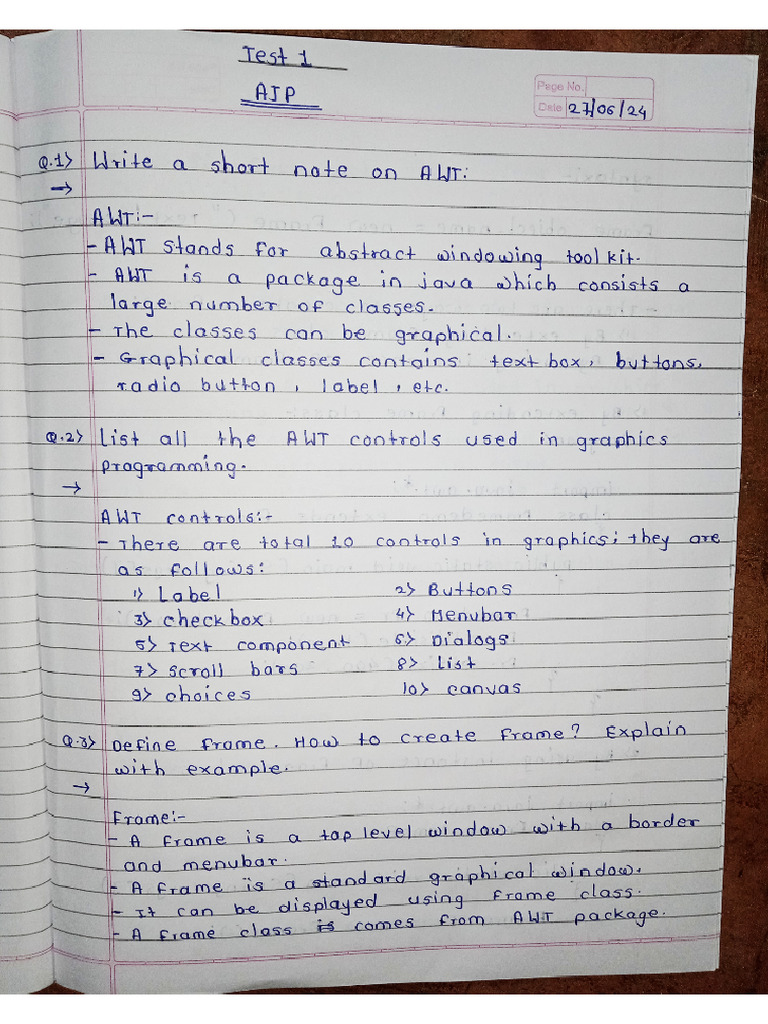 Test 1
AJP
Page No.
Date 27/06/24
Q.1> Write a short note on AWT:
→
AWT:-
- AWT stands for abstract windowing toolkit.
- AWT is a package in java which consists a
large number of classes.
- The classes can be graphical.
- Graphical classes contains text box, buttons,
radio button, label, etc.
Q.2> List all the AWT controls used in graphics
programming.
→
AWT controls:-
- There are total 10 controls in graphics; they are
as follows:
1> Label 2> Buttons
3> checkbox 4> Menubar
5> Text component 6> Dialogs
7> scroll bars 8> List
9> choices 10> canvas
Q.3> Define frame. How to create frame? Explain
with example.
→
Frame:-
- A frame is a top level window with a border
and menubar.
- A frame is a standard graphical window.
- It can be displayed using frame class.
- A frame class is comes from AWT package.